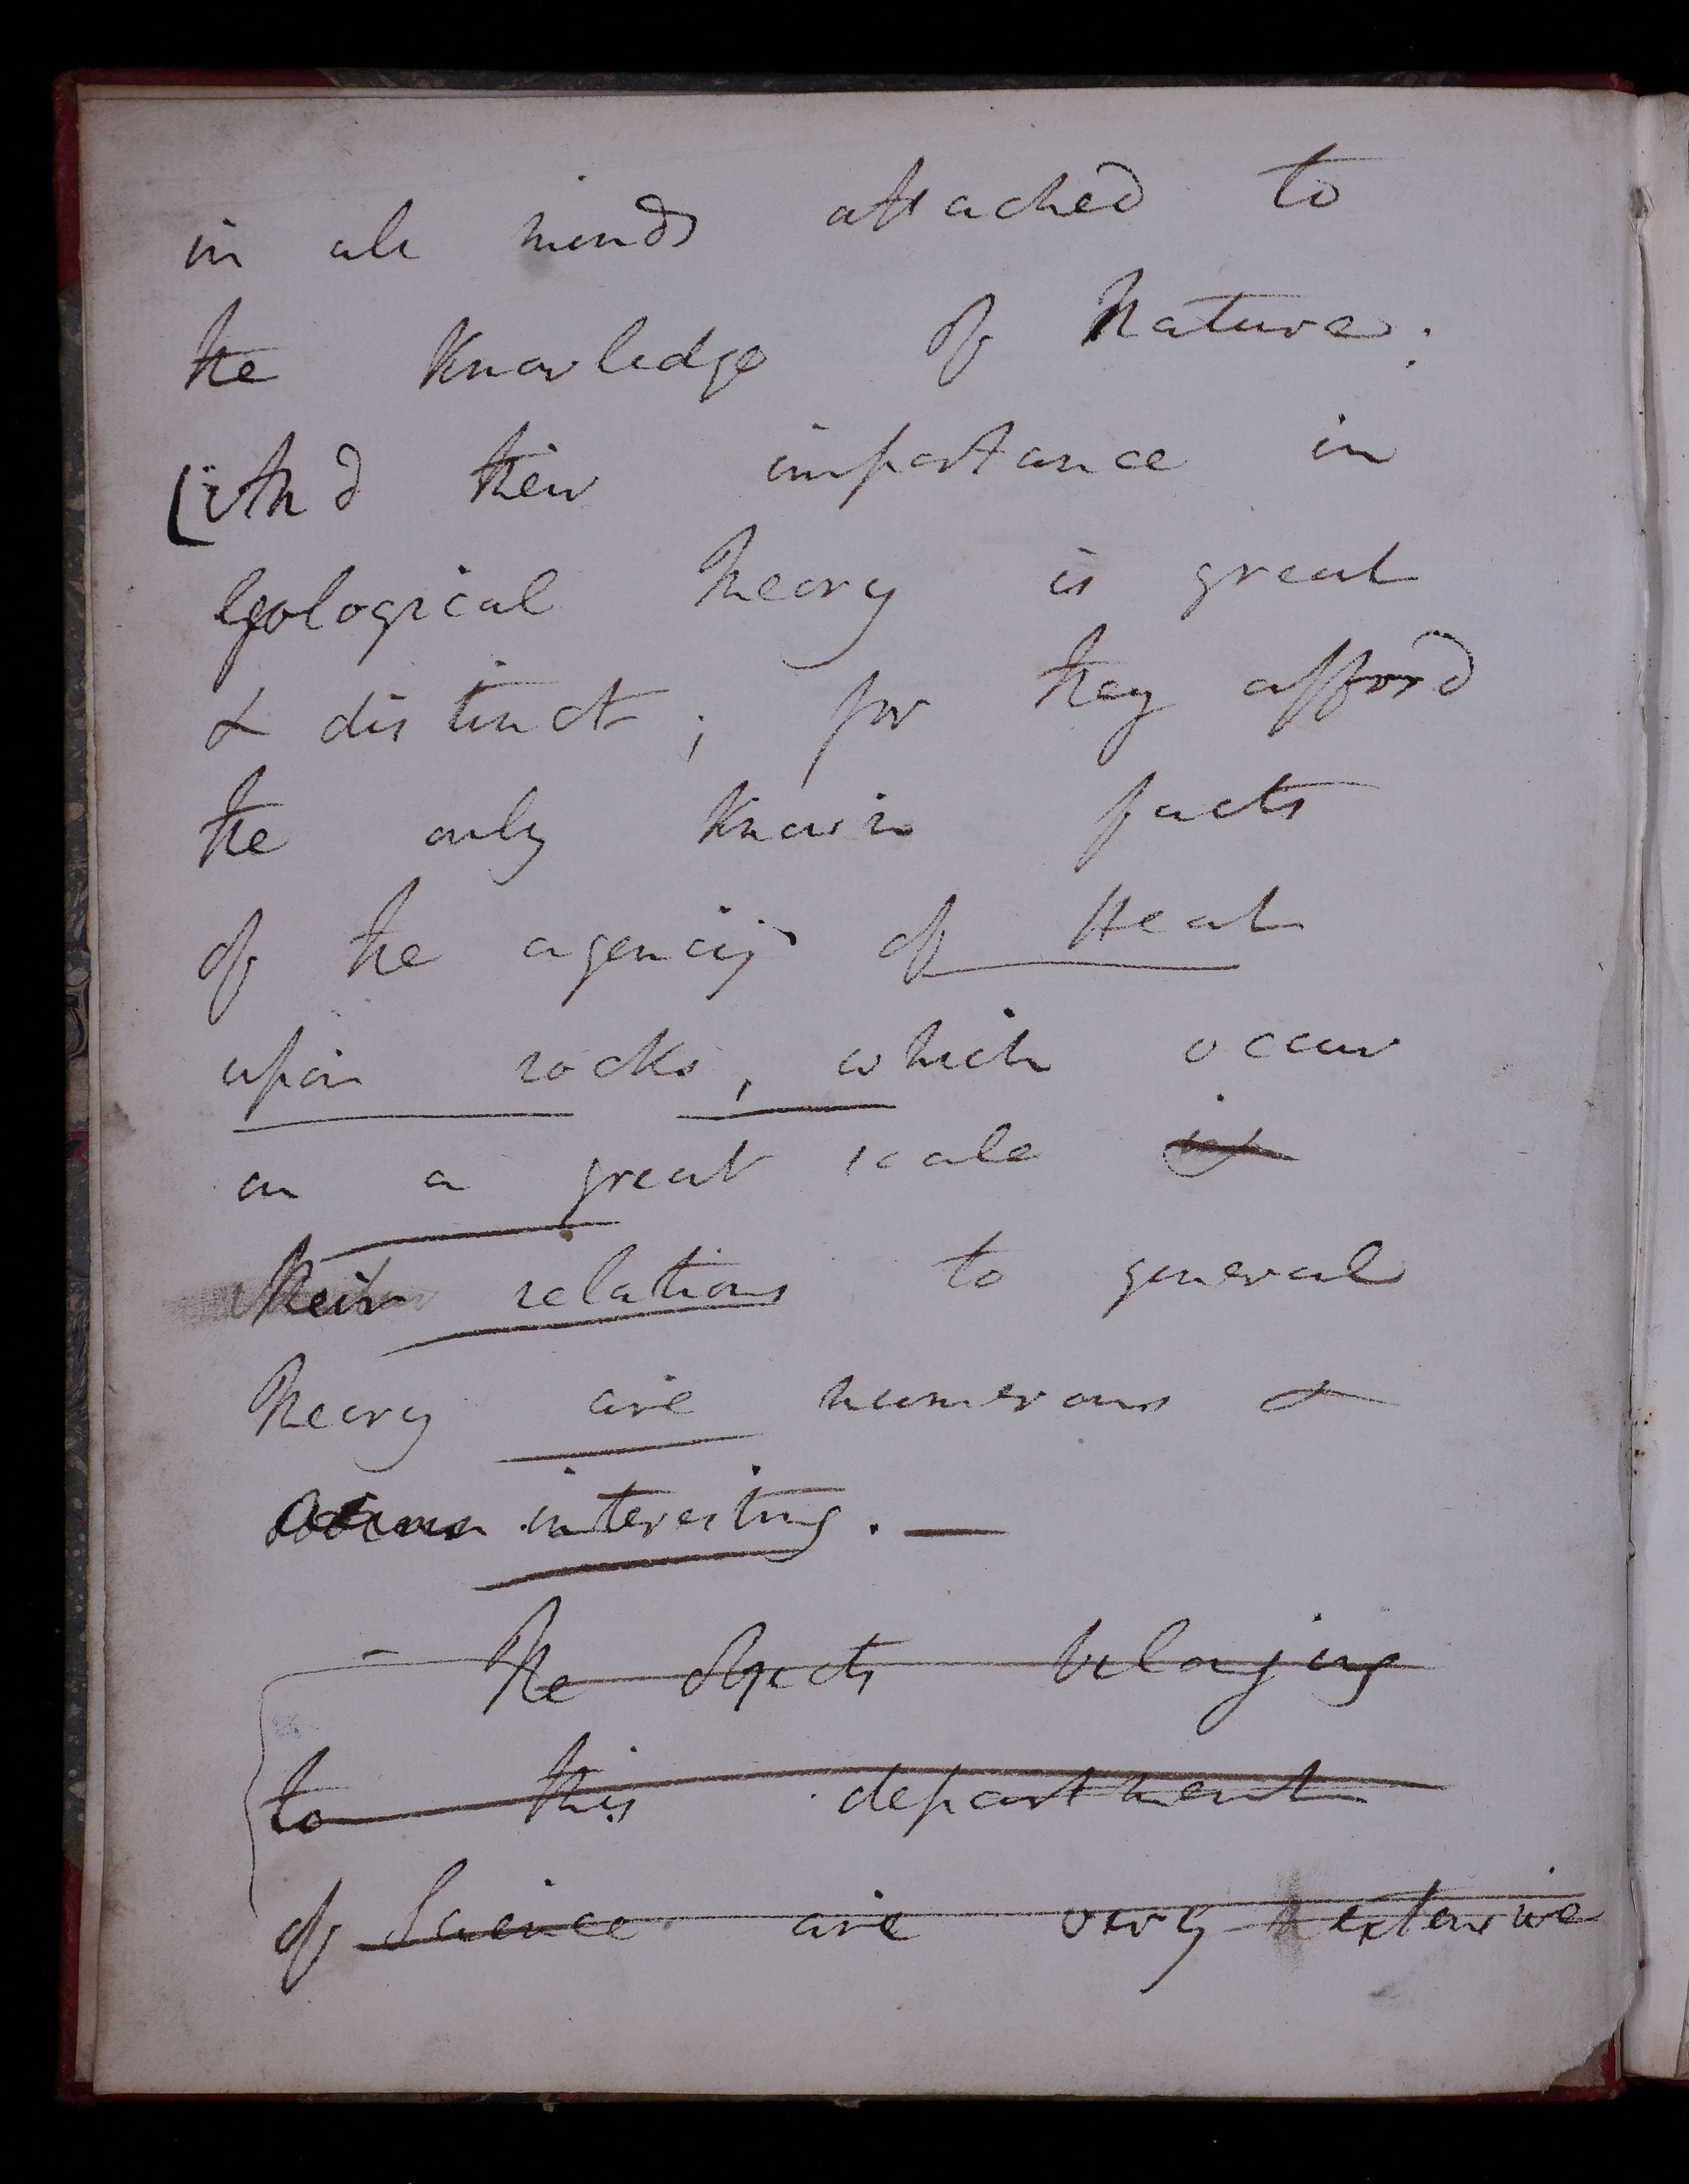 in all minds attached to
the Knowledge of Nature:
And their importance in
geological Theory is great
& distinct; for they afford
the only known facts
of the agency of Heat
upon rocks, which occur
on a great scale
their relations to general
Theory are numerous &
interesting. —
The objects belonging
to this department
of Science are very extensive